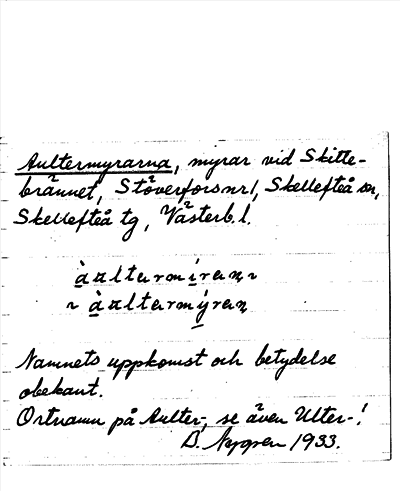 Aultermyrarna, myrar vid Skitte-
brännet, Stöverfors nr 1, Skellefteå sn,
Skellefteå tg, Västerb. l.
àaltarmíran ~
~ àaltarmýran
Namnets uppkomst och betydelse
obekant.
Ortnamn på Aulter-, se även Ulter-!
B. Nygren 1933.